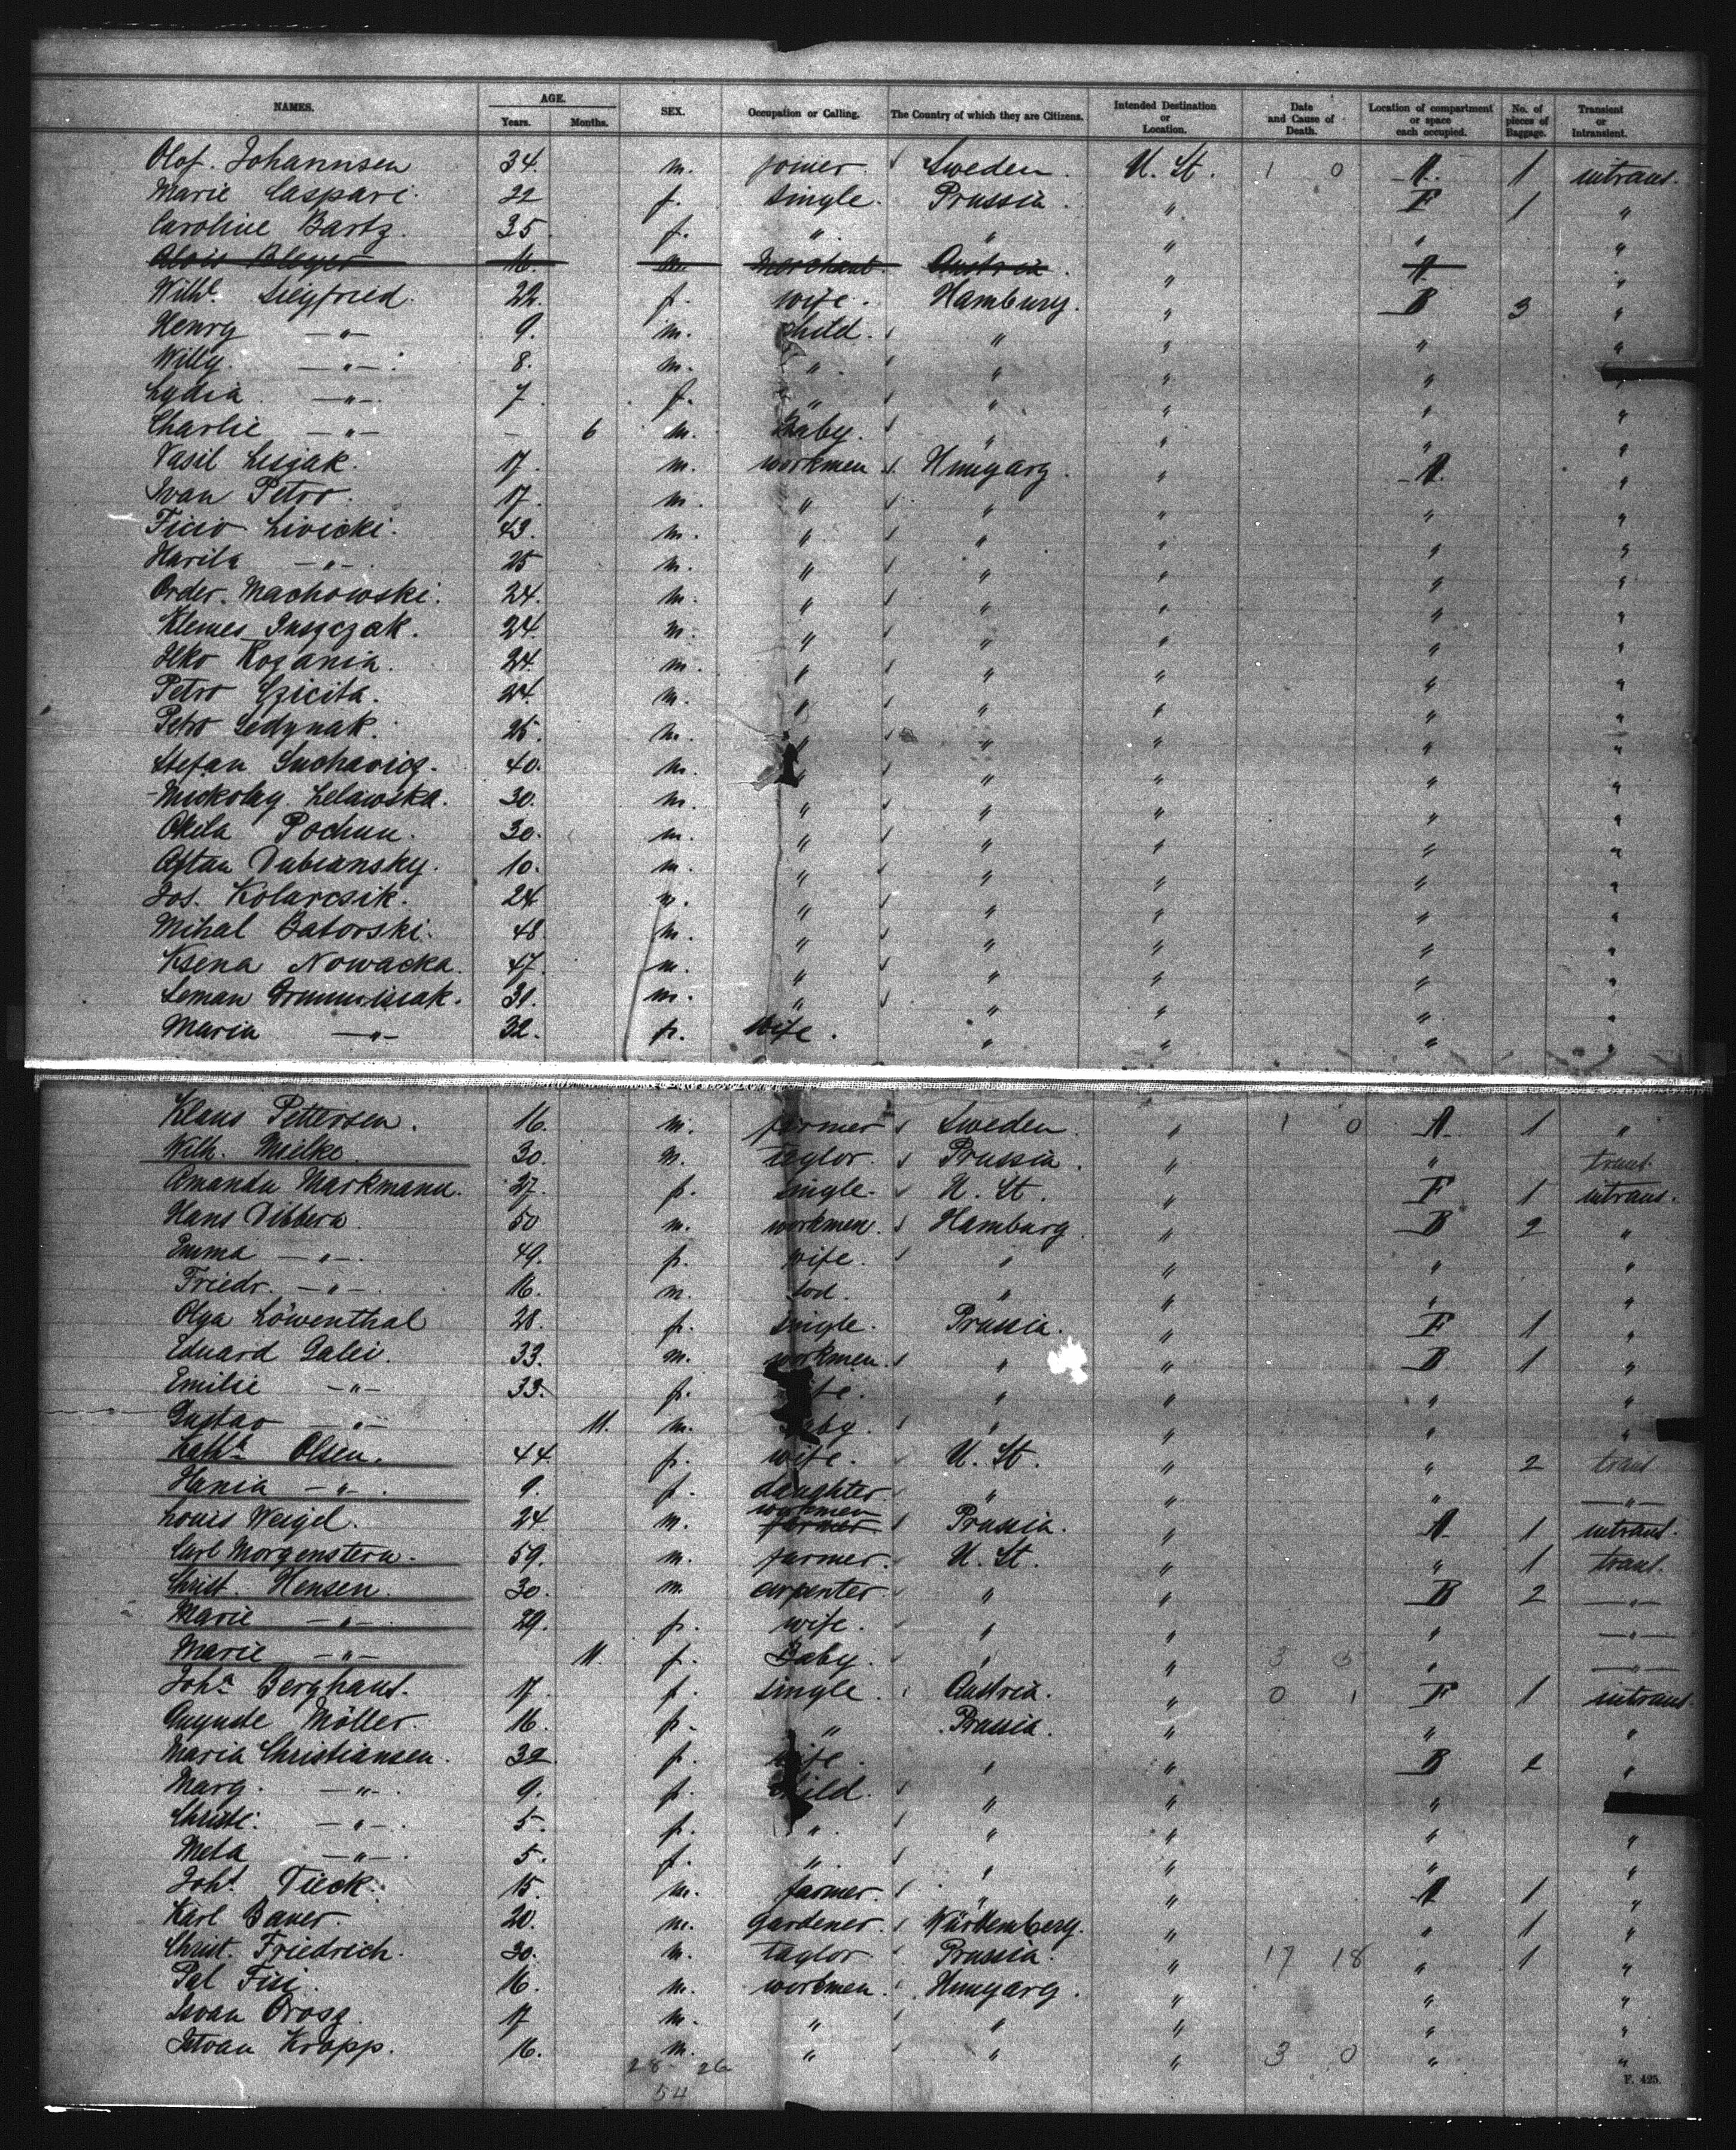 NAMES. AGE. Years. Months. SEX. Occupation or Calling. The Country of which they are Citizens. Intended Destination or Location. Date and Cause of Death. Location of compartment or space each occupied. No. of pieces of Baggage. Transient or Intransient.
Olof. Johannsen 34. m. joiner. Sweden. U. St. 1 0 A. 1 intrans.
Marie Caspari. 22 f. single. Prussia. " F 1 "
Caroline Bartz. 35. f. " " " " "
Alois Bleyer 16. m. Merchant. Austria. " A "
Wilhe. Siegfried. 22. f. wife. Hamburg. " B 3 "
Henry —"— 9. m. child. " " " "
Willy. —"—. 8. m. " " " " "
Lydia. —"—. 7. f. " " " " "
Charlie —"— – 6 m. Baby. " " " "
Vasil Lesjak. 17. m. workmen Hungary. " A. "
Ivan Petro. 17. m. " " " " "
Ficio Livicki. 43. m. " " " " "
Harila —"—. 25 m. " " " " "
Order. Machowski. 24. m. " " " " "
Klemes 24. m. " " " " "
Ilko Rogania. 24. m. " " " " "
Petro Czicita. 24. m. " " " " "
Petro Sedynak. 25. m. " " " " "
Stefan Suchavicz. 40. m. " " " " "
Mickolay Lelawska. 30. m. " " " " "
Okila Pochun. 30. m. " " " " "
Aftan Dubiansky. 10. m. " " " " "
Jos. Kolarcsik. 24 m. " " " " "
Mihal Batorski. 48. m. " " " " "
Ksena Nowacka. 47. m. " " " " "
Seman 31. m. " " " " "
Maria —"— 32. f. wife. " " " "
Klaus Pettersen. 16. m. farmer Sweden. " 1 0 A. 1 "
Wilh. Mielke. 30. m. taylor. Prussia. " " trans.
Amanda Markmann. 27. f. single. U. St. " F 1 intrans.
Hans Dibbern. 50 m. workmen. Hamburg. " B 2 "
Emma —"—. 49. f. wife. " " " "
Friedr. —"—. 16. m. sod. " " " "
Olga Löwenthal 28. f. single. Prussia. " F 1 "
Eduard Galei. 33. m. workmen. " " B 1 "
Emilie —"— 33. f. wife. " " " "
Gustav —"— 11. m. Baby. " " " "
Cathe. Olsen. 44. f. wife. U. St. " " 2 trans
Hania —"—. 9. f. daughter. " " " —"—
Louis Weigel. 24. m. workmen farmer Prussia. " A 1 intrans.
Carl Morgenstern. 59. m. farmer. U. St. " " 1 trans.
Christ. Hensen. 30. m. carpenter " " B 2 —"—
Marie —"—. 29. f. wife. " " " —"—
Marie —"— 11. f. Baby. " " 3 0 " —"—
Joha. Berghaus. 17. f. single. Austria. " 0 1 F 1 intrans.
Auguste Möller. 16. f. " Prussia. " " "
Maria Christiansen. 32. f. wife. " " B 2 "
Marg. —"—. 9. f. child. " " " "
Christe. —"—. 5. f. " " " " "
Meta —"—. 5. f. " " " " "
Johs. Tieck. 15. m. farmer. " " A 1 "
Karl Bauer. 20. m. gardener. Württemberg. " " 1 "
Christ. Friedrich. 30. m. taylor. Prussia. " 17 18 " 1 "
Pal Fisi. 16. m. workmen. Hungary. " " "
Istvan Orosz. 17 m. " " " " "
Istvan Kropp. 16. m. " " " 3 0 " "
28 26
54
F. 425.